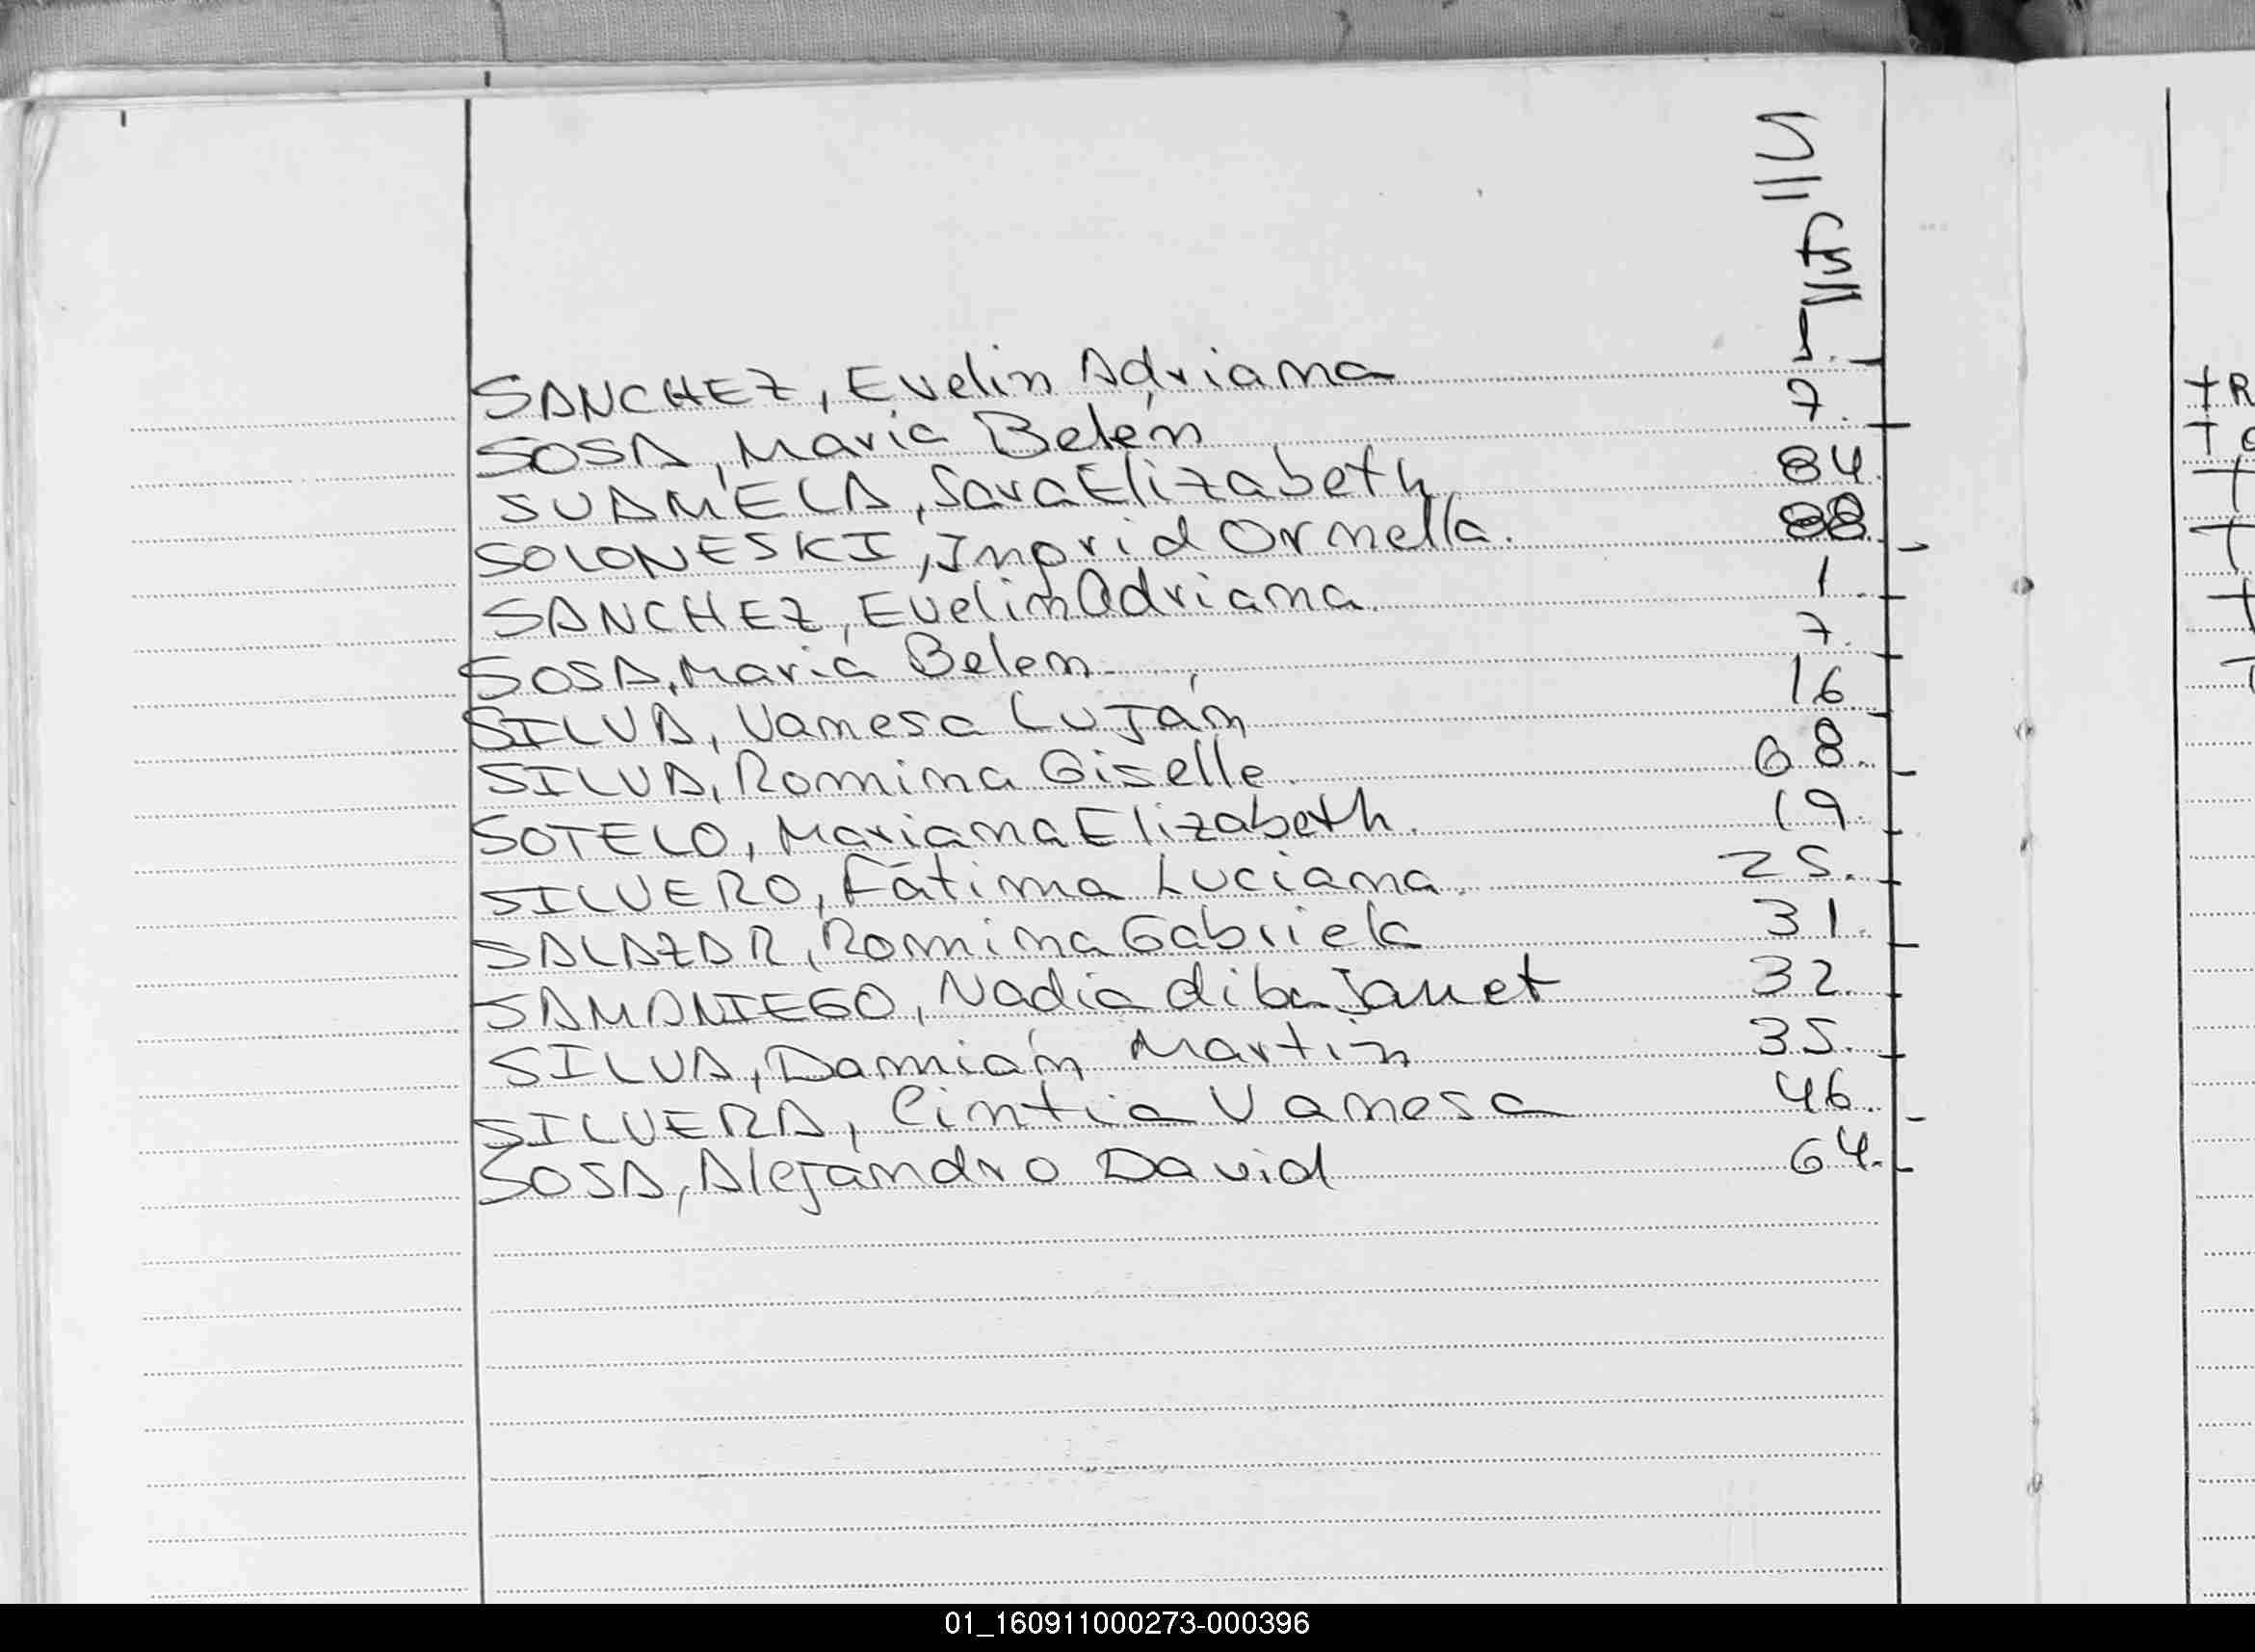 SANCHEZ, Evelin Adriana 1.
SOSA, Maria Belén 7.
SUAMELA, Sara Elizabeth 84.
SOLONESKI, Ingrid Ornella. 88.
SANCHEZ, Evelin Adriana. 1.
SOSA, Maria Belen 7.
SILVA, Vanesa Luján 16.
SILVA, Romina Giselle. 68.
SOTELO, Mariana Elizabeth. 19.
SILVERO, Fátima Luciana. 25.
SALAZAR, Romina Gabriela 31.
SAMANIEGO, Nadia diba Janet 32.
SILVA, Damián Martín 35.
SILVERA, Cintia Vanesa 46.
SOSA, Alejandro David 64.
01_160911000273-000396